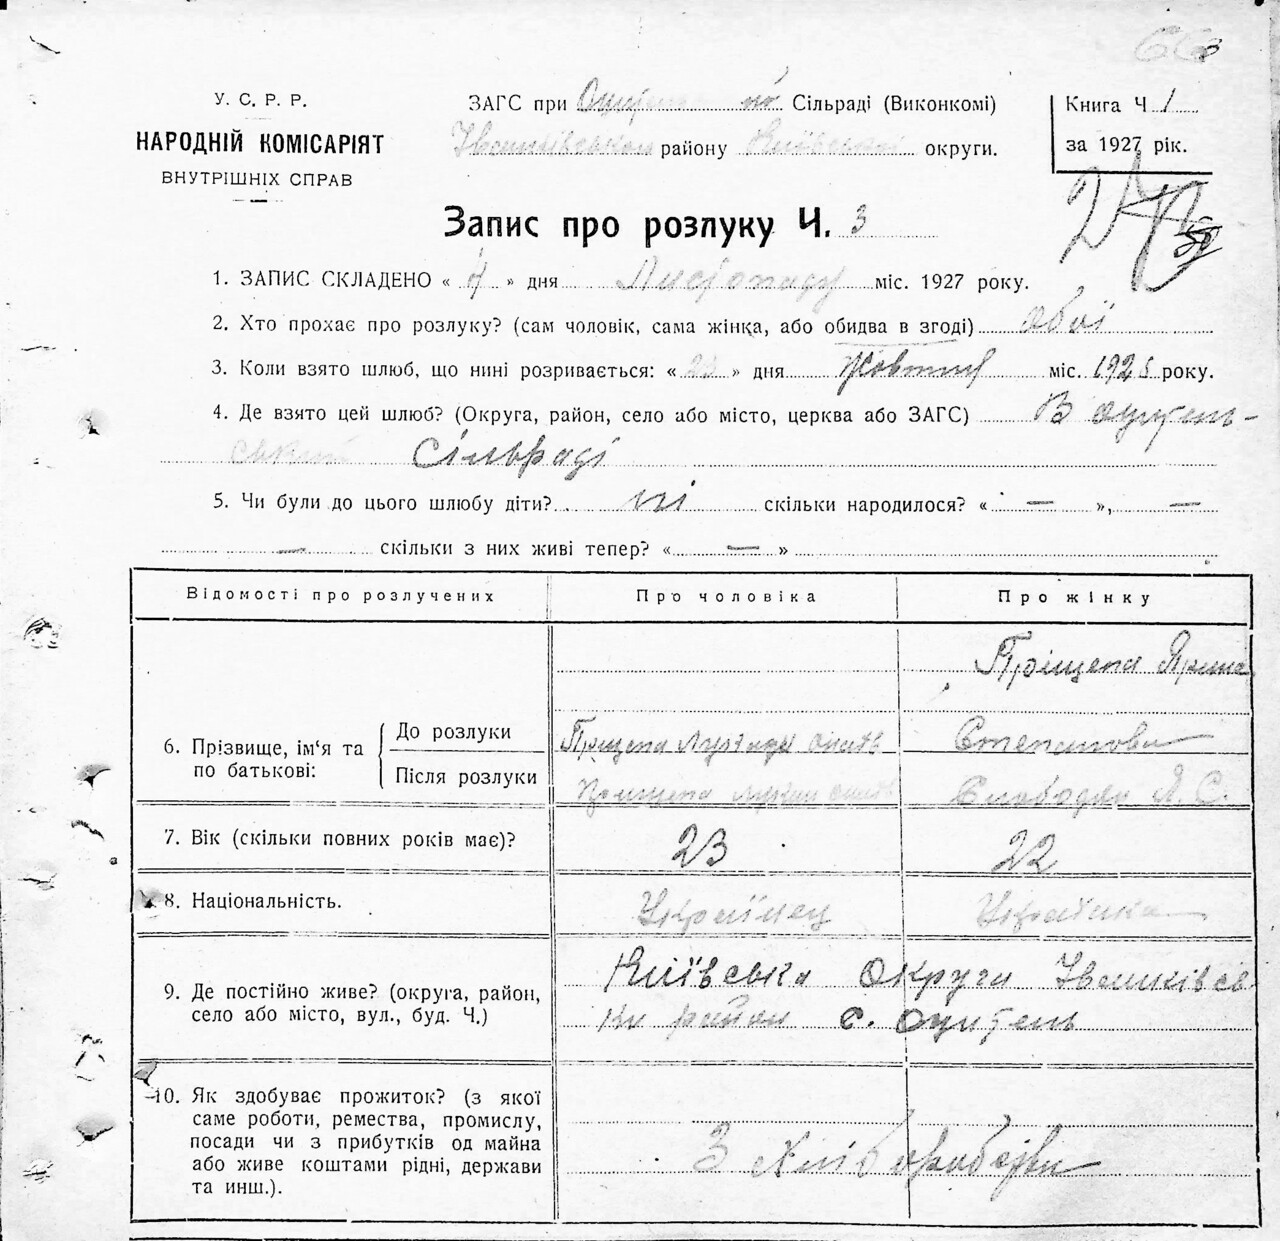 У. С. Р. Р.
НАРОДНІЙ КОМІСАРІЯТ
ВНУТРІШНІХ СПРАВ
ЗАГС при Сільраді (Виконкомі)
Іванківськом району Київської округи.
Книга Ч 1
за 1927 рік.
Запис про розлуку Ч. 3
1. ЗАПИС СКЛАДЕНО « » дня Листопаду міс. 1927 року.
2. Хто прохає про розлуку? (сам чоловік, сама жінка, або обидва в згоді) обої
3. Коли взято шлюб, що нині розривається: « 23 » дня Жовтня міс. 1925 року.
4. Де взято цей шлюб? (Округа, район, село або місто, церква або ЗАГС) В оцитель-
ській Сільраді
5. Чи були до цього шлюбу діти? ні скільки народилося? « — », —
— скільки з них живі тепер? « — »
Відомості про розлучених
Про чоловіка
Про жінку
6. Прізвище, ім‘я та по батькові:
До розлуки
Після розлуки
Пріщепа
Пріщепа Ярина
Степанова
Слободян Я. С.
7. Вік (скільки повних років має)?
23
22
8. Національність.
Українец
Українка
9. Де постійно живе? (округа, район,
село або місто, вул., буд. Ч.)
Київська Округа Іванківсь
кий район с. Оцитель
10. Як здобуває прожиток? (з якої
саме роботи, ремества, промислу,
посади чи з прибутків од майна
або живе коштами рідні, держави
та инш.).
З хліборобства